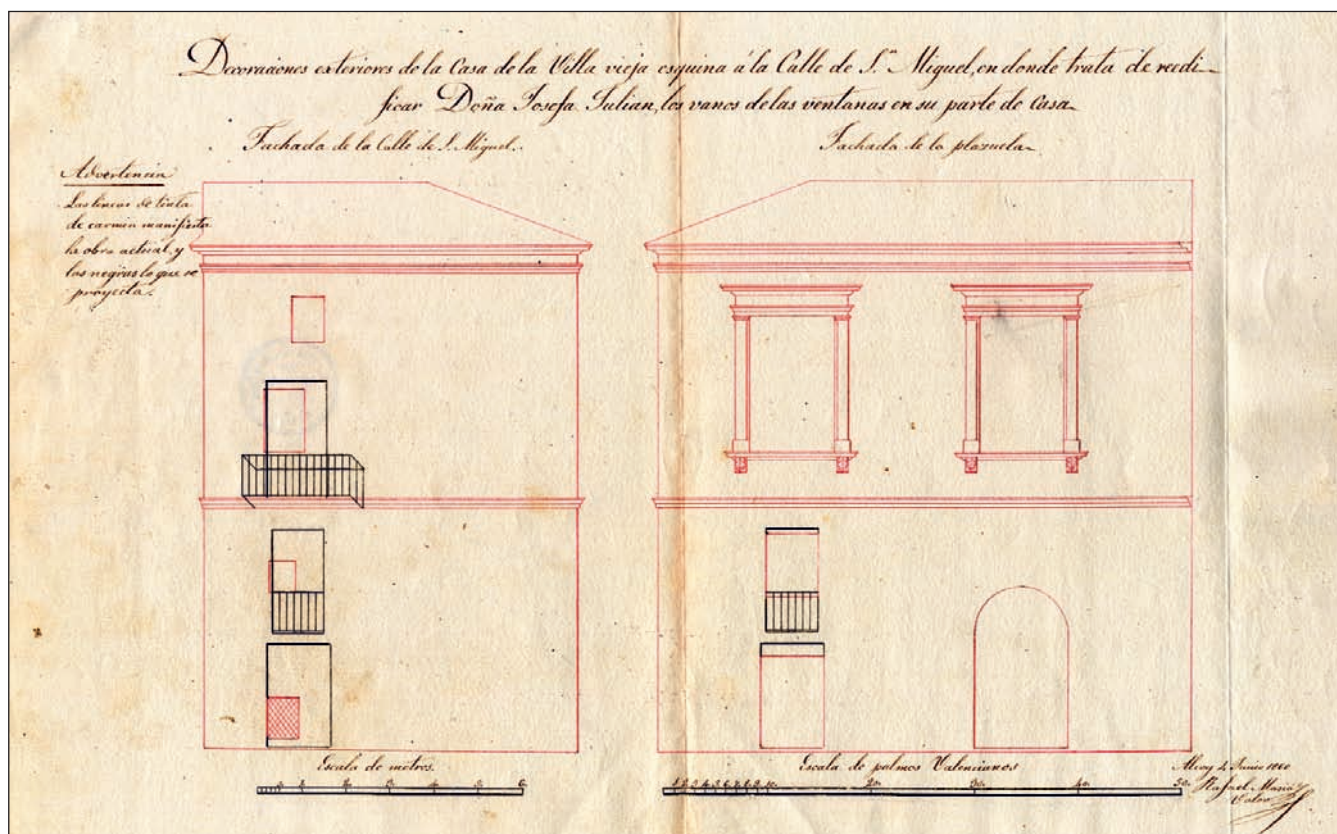 Decoraciones exteriores de la Casa de la Villa vieja esquina á la Calle de S.ⁿ Miguel, en donde trata de reedi-
ficar Doña Josefa Julian, los vanos de las ventanas en su parte de Casa
Fachada de la Calle de S. Miguel.
Fachada de la plazuela
Advertencia
Las lineas de tinta
de carmin manifiesta
la obra actual, y
las negras lo que se
proyecta.
Escala de metros.
1 2 3 4 5 6
Escala de palmos Valencianos
1 2 3 4 5 6 7 8 9 10 20 30 40 50
Alcoy 4 Junio 1860
Rafael Masia y
Valor